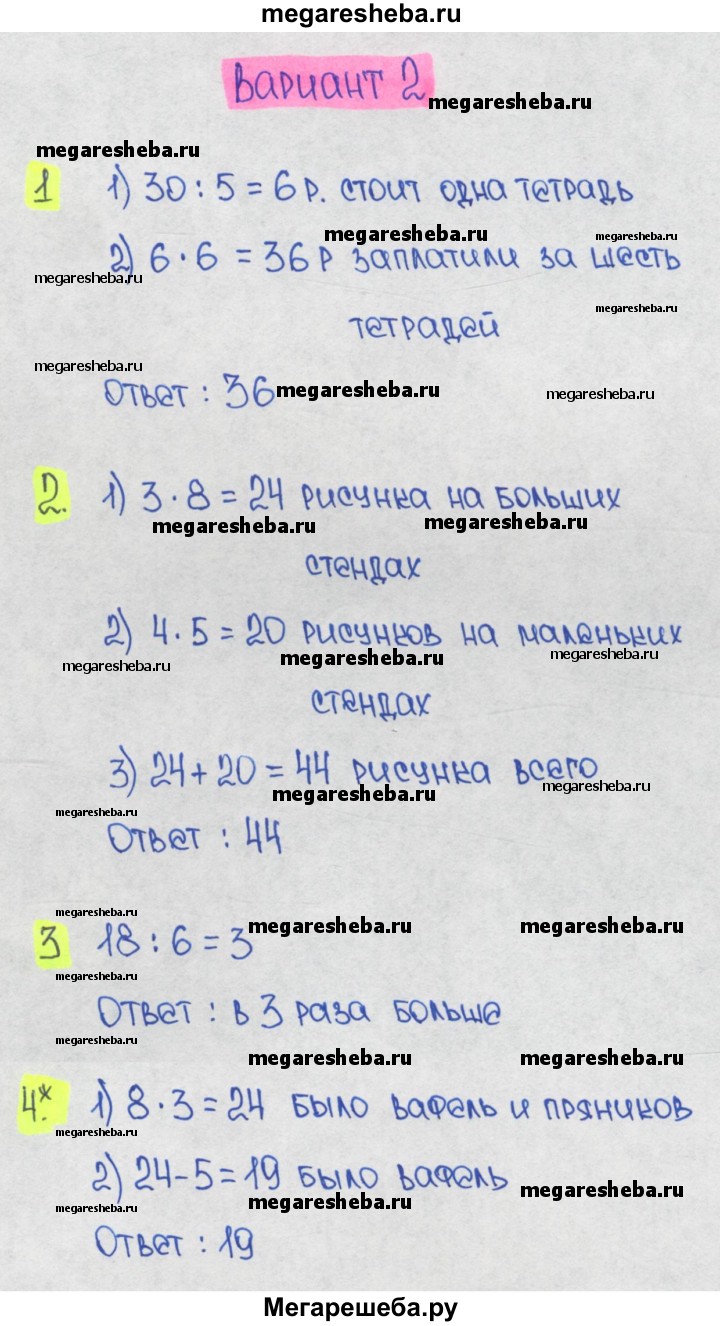 megaresheba.ru
Вариант 2
megaresheba.ru
megaresheba.ru
1 1) 30 : 5 = 6 р. стоит одна тетрадь
megaresheba.ru megaresheba.ru
2) 6 · 6 = 36 р заплатили за шесть
megaresheba.ru
megaresheba.ru
тетрадей
megaresheba.ru
Ответ : 36 megaresheba.ru megaresheba.ru
2. 1) 3 · 8 = 24 рисунка на больших
megaresheba.ru megaresheba.ru
стендах
2) 4 · 5 = 20 рисунков на маленьких
megaresheba.ru megaresheba.ru megaresheba.ru
стендах
3) 24 + 20 = 44 рисунка всего
megaresheba.ru megaresheba.ru
megaresheba.ru
Ответ : 44
megaresheba.ru megaresheba.ru megaresheba.ru
3 18 : 6 = 3
megaresheba.ru
Ответ : в 3 раза больше
megaresheba.ru
megaresheba.ru megaresheba.ru
4.* 1) 8 · 3 = 24 было вафель и пряников
megaresheba.ru
2) 24 - 5 = 19 было вафель
megaresheba.ru megaresheba.ru megaresheba.ru
Ответ : 19
megaresheba.ru
Мегарешеба.ру